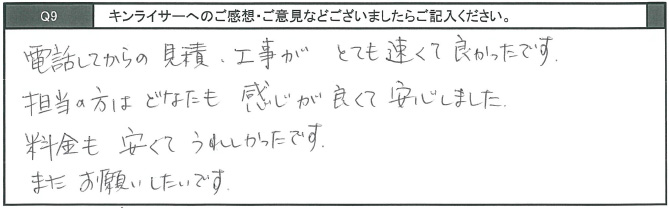 Q9 キンライサーへのご感想・ご意見などございましたらご記入ください。
電話してからの見積、工事が とても速くて良かったです.
担当の方は どなたも 感じが良くて 安心しました.
料金も 安くて うれしかったです.
また お願いしたいです.